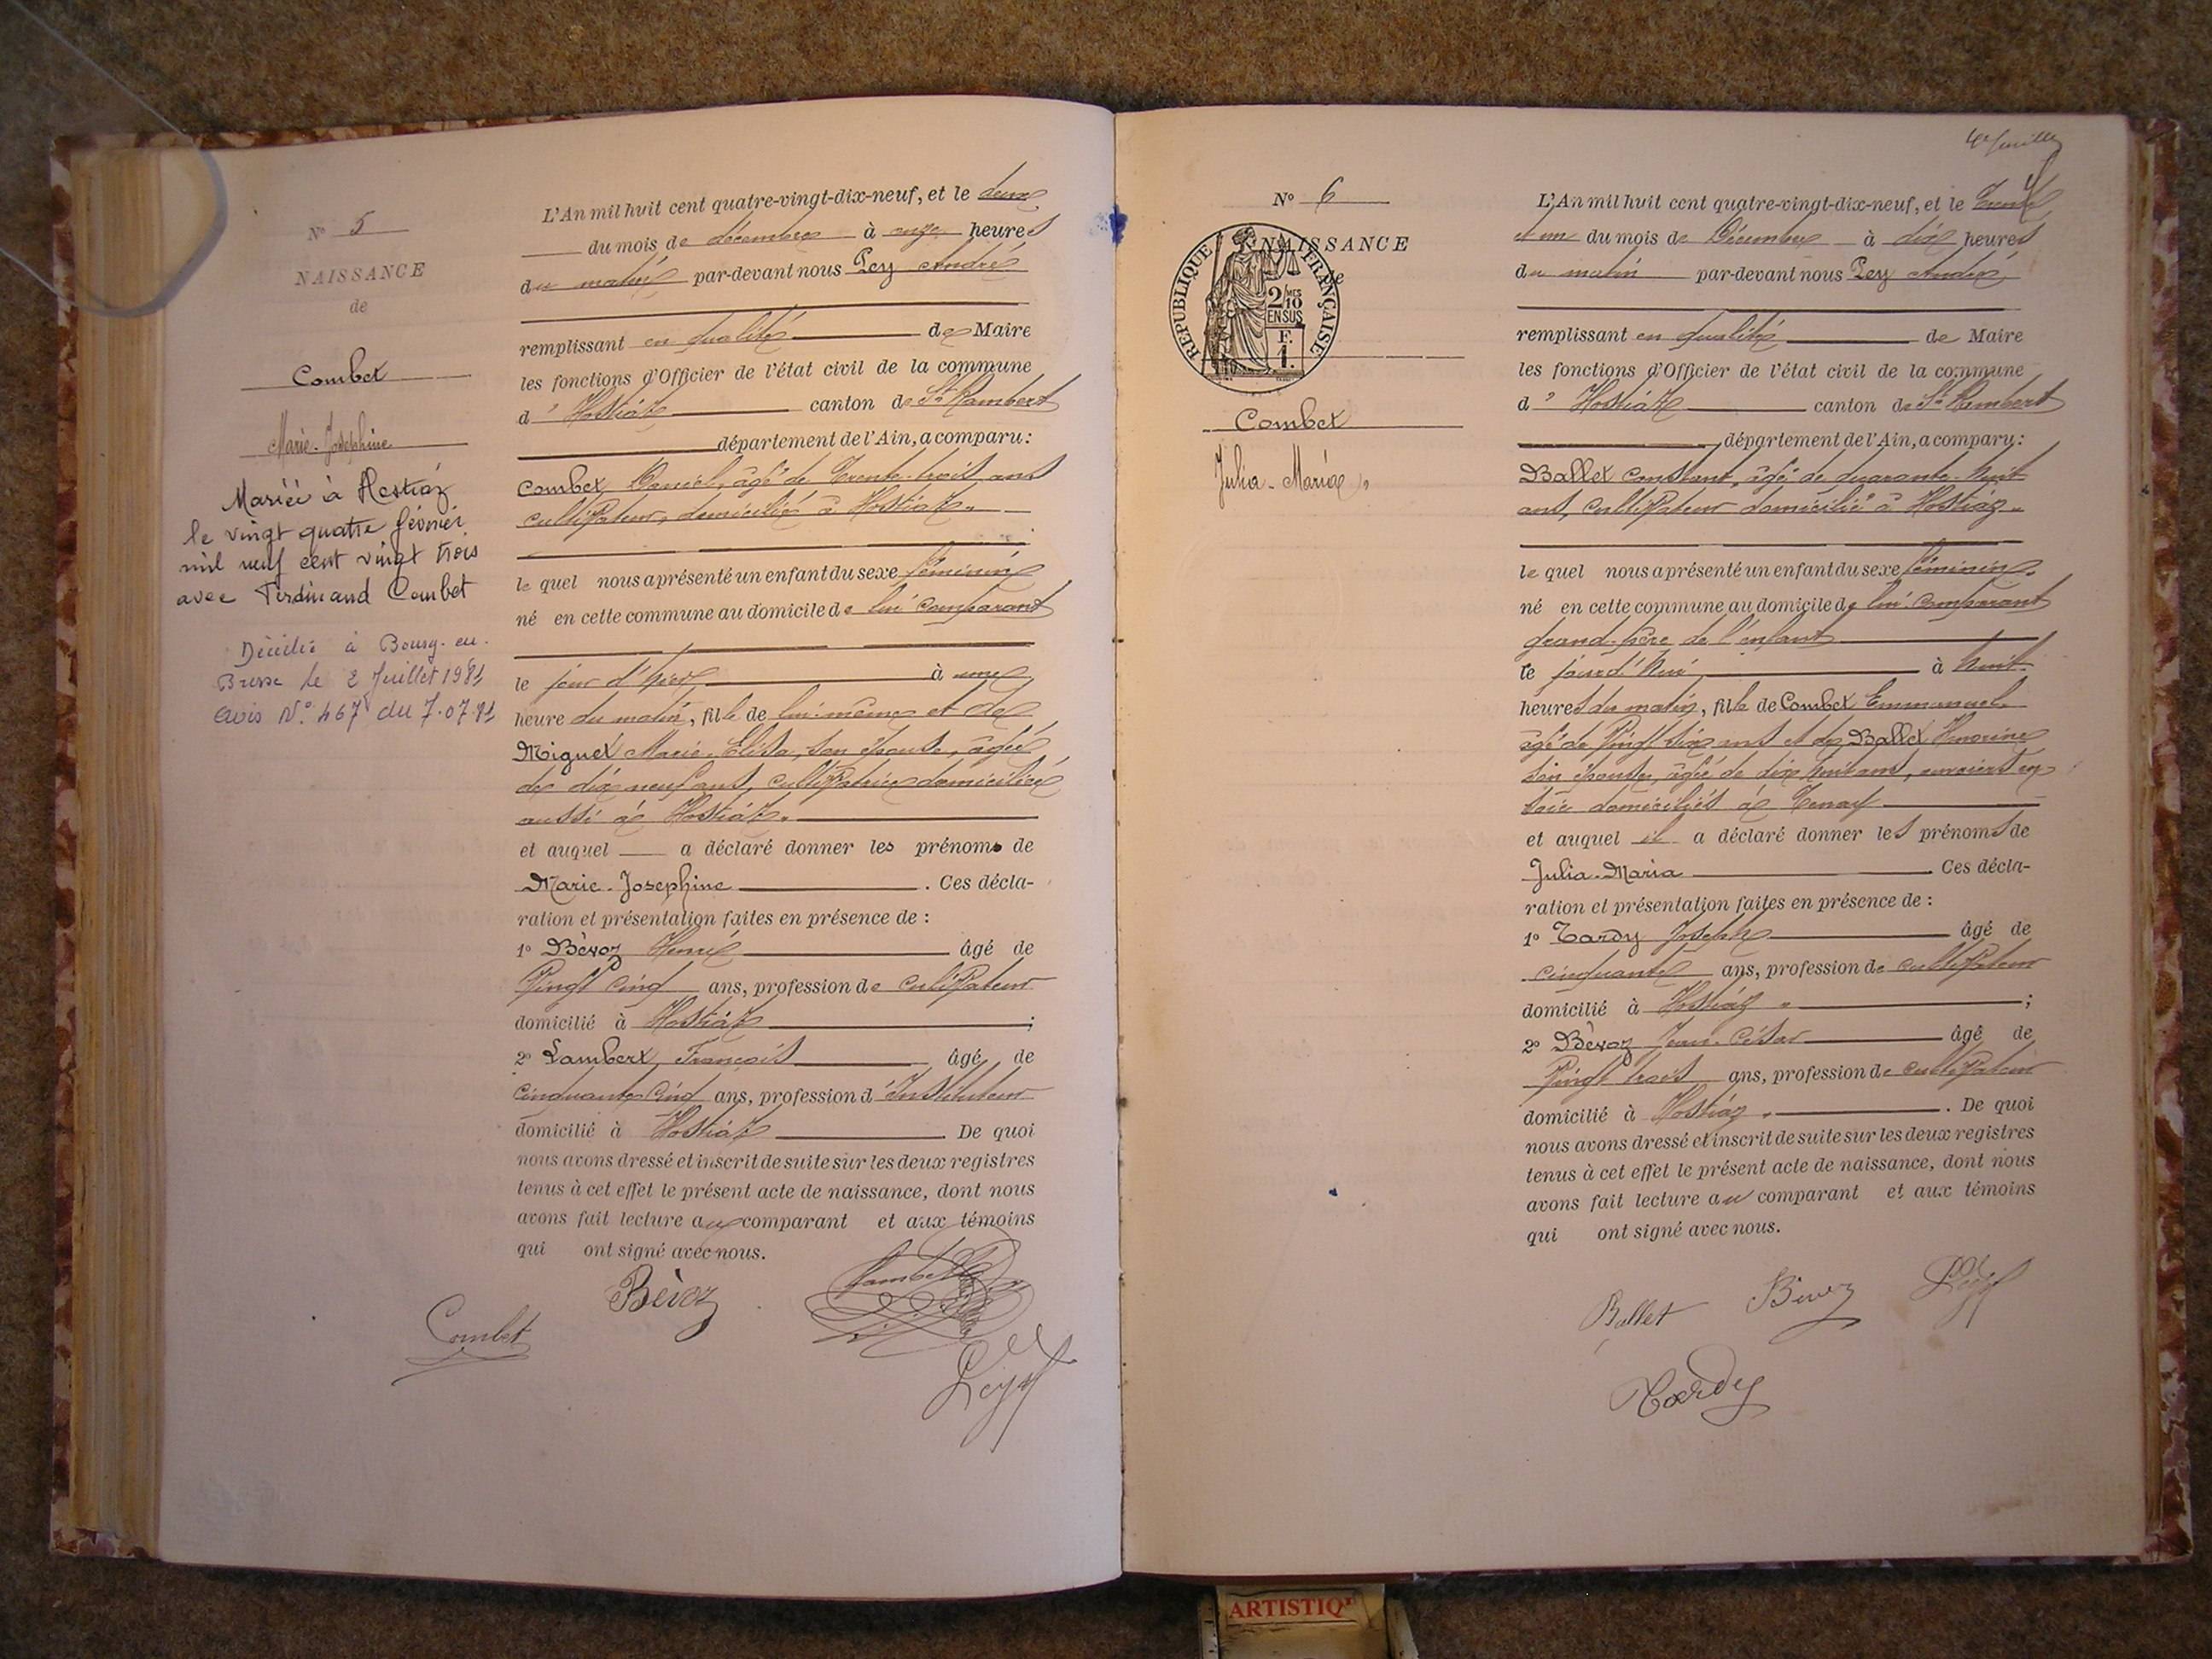 N° 5
NAISSANCE
de
Combet
Marie-Joséphine
Mariée à Hostiaz
le vingt quatre février
mil neuf cent vingt trois
avec Ferdinand Combet
Décédée à Bourg-en-
Bresse le 2 Juillet 1981
avis N° 467 du 7.07.81
L'An mil huit cent quatre-vingt-dix-neuf, et le deux
du mois de décembre à onze heures
du matin par-devant nous Pey André
remplissant en qualité de Maire
les fonctions d'Officier de l'état civil de la commune
d' Hostiaz canton de St Rambert
département de l'Ain, a comparu:
Combet Daniel, âgé de Trente-trois ans
cultivateur, domicilié à Hostiaz.
le quel nous a présenté un enfant du sexe féminin
né en cette commune au domicile de lui comparant
le jour d'hier à une
heure du matin, fille de lui-même et de
Miguet Marie-Elisa, son épouse, âgée
de dix neuf ans, cultivatrice domiciliée
aussi à Hostiaz.
et auquel a déclaré donner les prénoms de
Marie-Josephine . Ces décla-
ration et présentation faites en présence de :
1° Bèvoz Henri âgé de
Vingt cinq ans, profession de cultivateur
domicilié à Hostiaz ;
2° Lambert François âgé de
Cinquante cinq ans, profession d'Instituteur
domicilié à Hostiaz . De quoi
nous avons dressé et inscrit de suite sur les deux registres
tenus à cet effet le présent acte de naissance, dont nous
avons fait lecture au comparant et aux témoins
qui ont signé avec nous.
Bèvoz Lambert
Combet
Pey
4e feuille
N° 6
NAISSANCE
de
RÉPUBLIQUE FRANÇAISE
2/10 MES
EN SUS
F.
1.
Combet
Julia-Maria
L'An mil huit cent quatre-vingt-dix-neuf, et le Trente
et un du mois de Décembre à dix heures
du matin par-devant nous Pey André
remplissant en qualité de Maire
les fonctions d'Officier de l'état civil de la commune
d' Hostiaz canton de St Rambert
département de l'Ain, a comparu:
Ballet Constant, âgé de quarante-huit
ans, cultivateur domicilié à Hostiaz.
le quel nous a présenté un enfant du sexe féminin.
né en cette commune au domicile de lui comparant
grand-père de l'enfant
le jourd'hui à huit
heures du matin, fille de Combet Emmanuel
âgé de Vingt six ans et de Ballet
son épouse, âgée de dix huit ans, ouvriers en
soie domiciliés à Tenay
et auquel il a déclaré donner les prénoms de
Julia-Maria Ces décla-
ration et présentation faites en présence de :
1° Tardy Joseph âgé de
cinquante ans, profession de cultivateur
domicilié à Hostiaz ;
2° Bèvoz Jean-César âgé de
Vingt trois ans, profession de cultivateur
domicilié à Hostiaz . De quoi
nous avons dressé et inscrit de suite sur les deux registres
tenus à cet effet le présent acte de naissance, dont nous
avons fait lecture au comparant et aux témoins
qui ont signé avec nous.
Ballet Bèvoz Pey
Tardy
ARTISTIQ